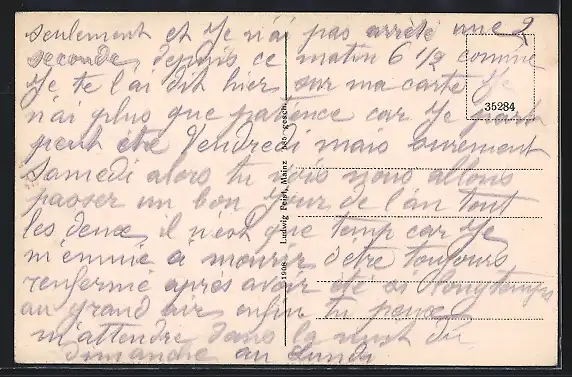 seulement et je n'ai pas arrêté une
seconde, depuis ce matin 6 1/2 comme
Je te l'ai dit hier sur ma carte Je
n'ai plus que patience car Je
peut être Vendredi mais surement
Samedi alors tu vois nous allons
passer un bon Jour de l'an tout
les deux, il n'est que temp car Je
m'ennuie a mourir d'être toujours
renfermé après avoir été si longtemps
au grand air enfin tu peux
m'attendre dans la nuit du
dimanche au Lundi
35284
© 1908 Ludwig Feist, Mainz gesch.